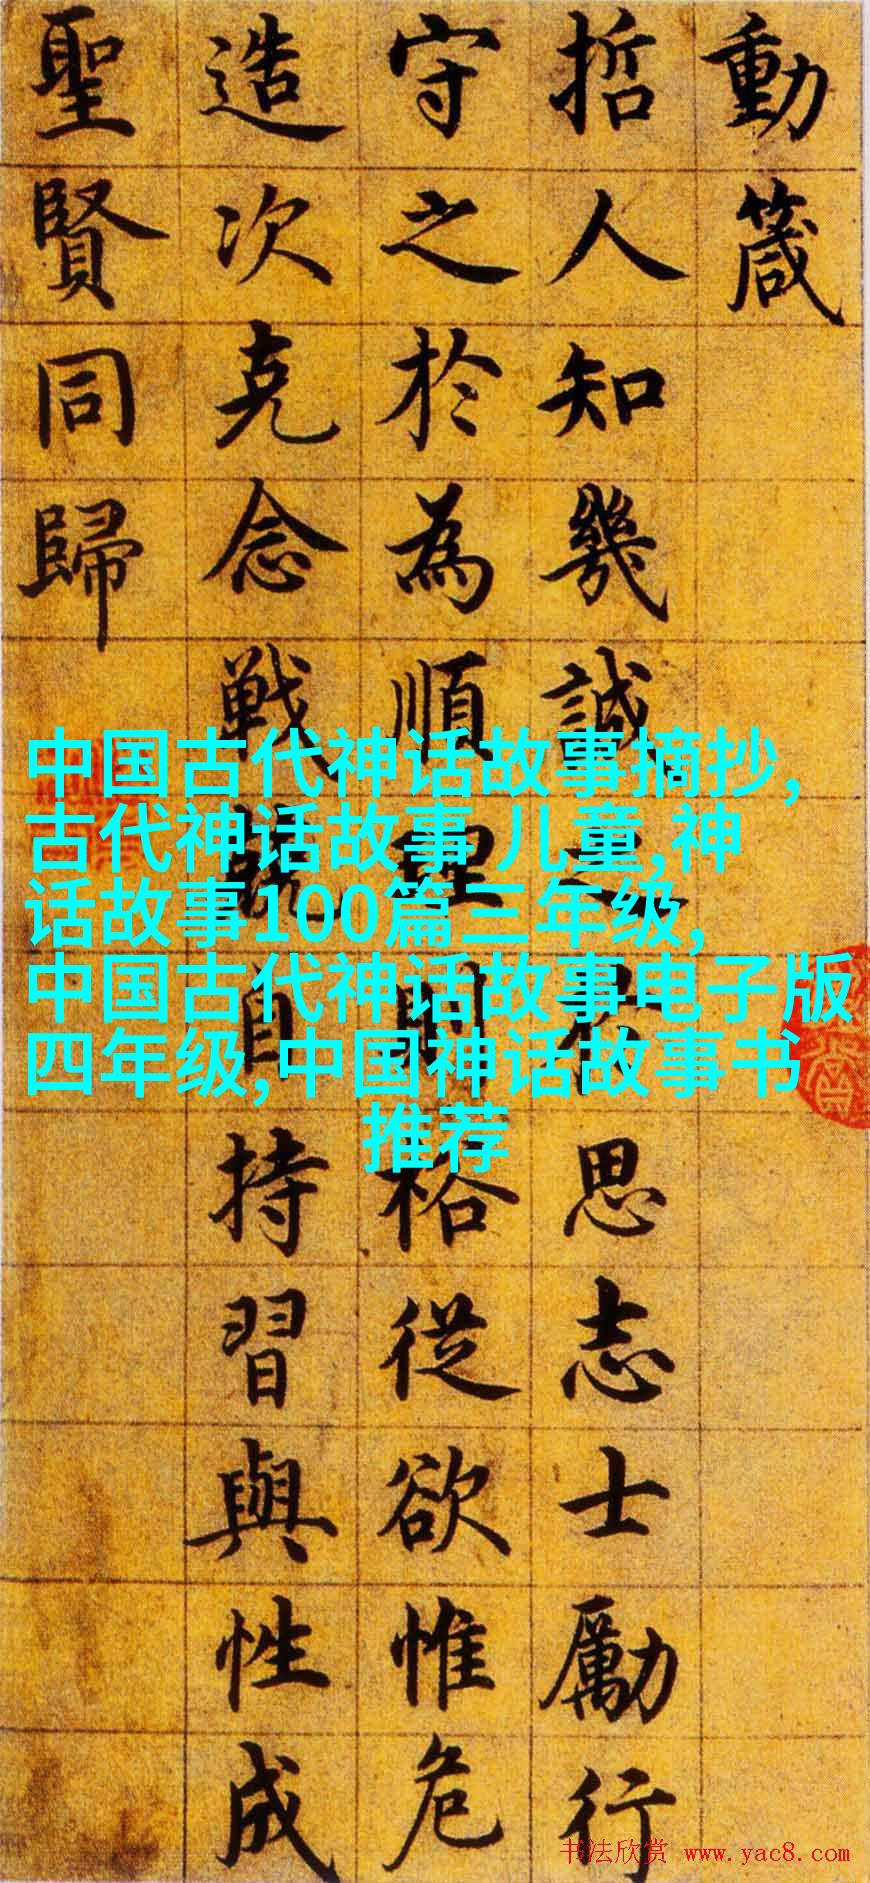 動箴
哲人知幾誠之於思志士勵行
守之於為順理則裕從欲惟危
造次克念戰兢自持習與性成
聖賢同歸
中国古代神话故事摘抄,
古代神话故事 儿童,神
话故事100篇三年级,
中国古代神话故事电子版
四年级,中国神话故事书
推荐
书法欣赏 www.yac8.com